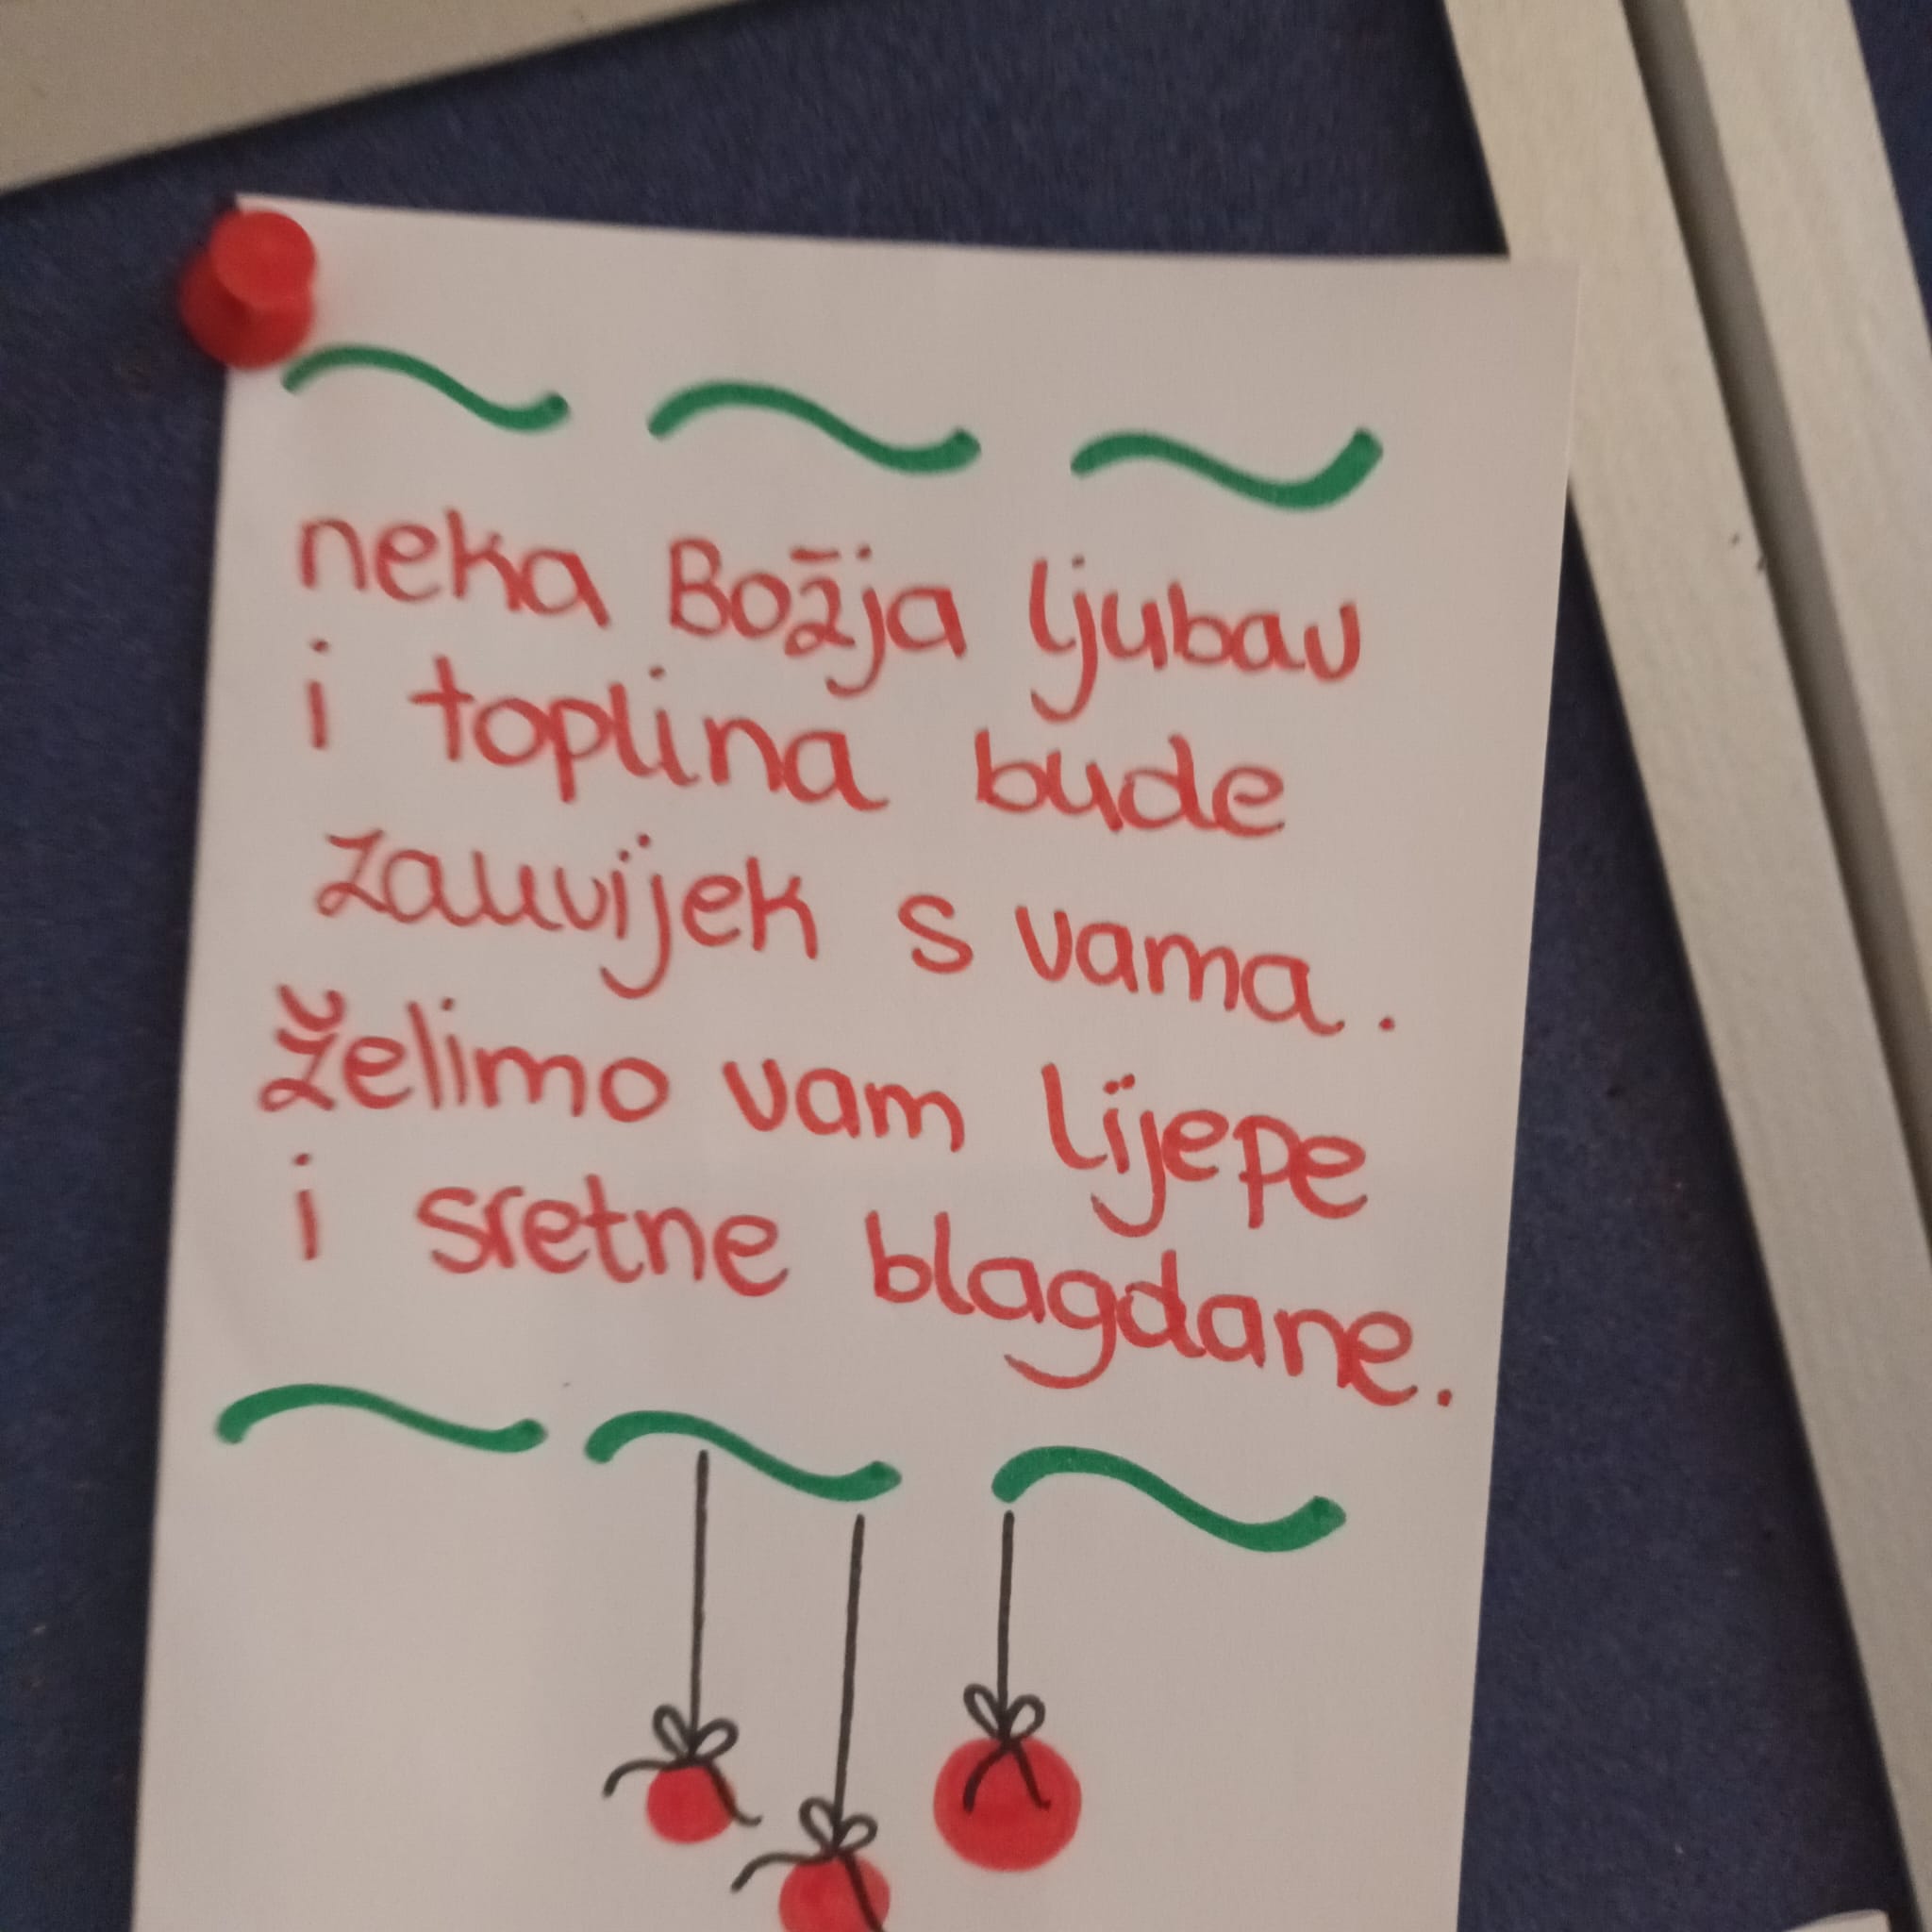 neka Božja ljubav
i toplina bude
zauvijek s vama.
želimo vam lijepe
i sretne blagdane.